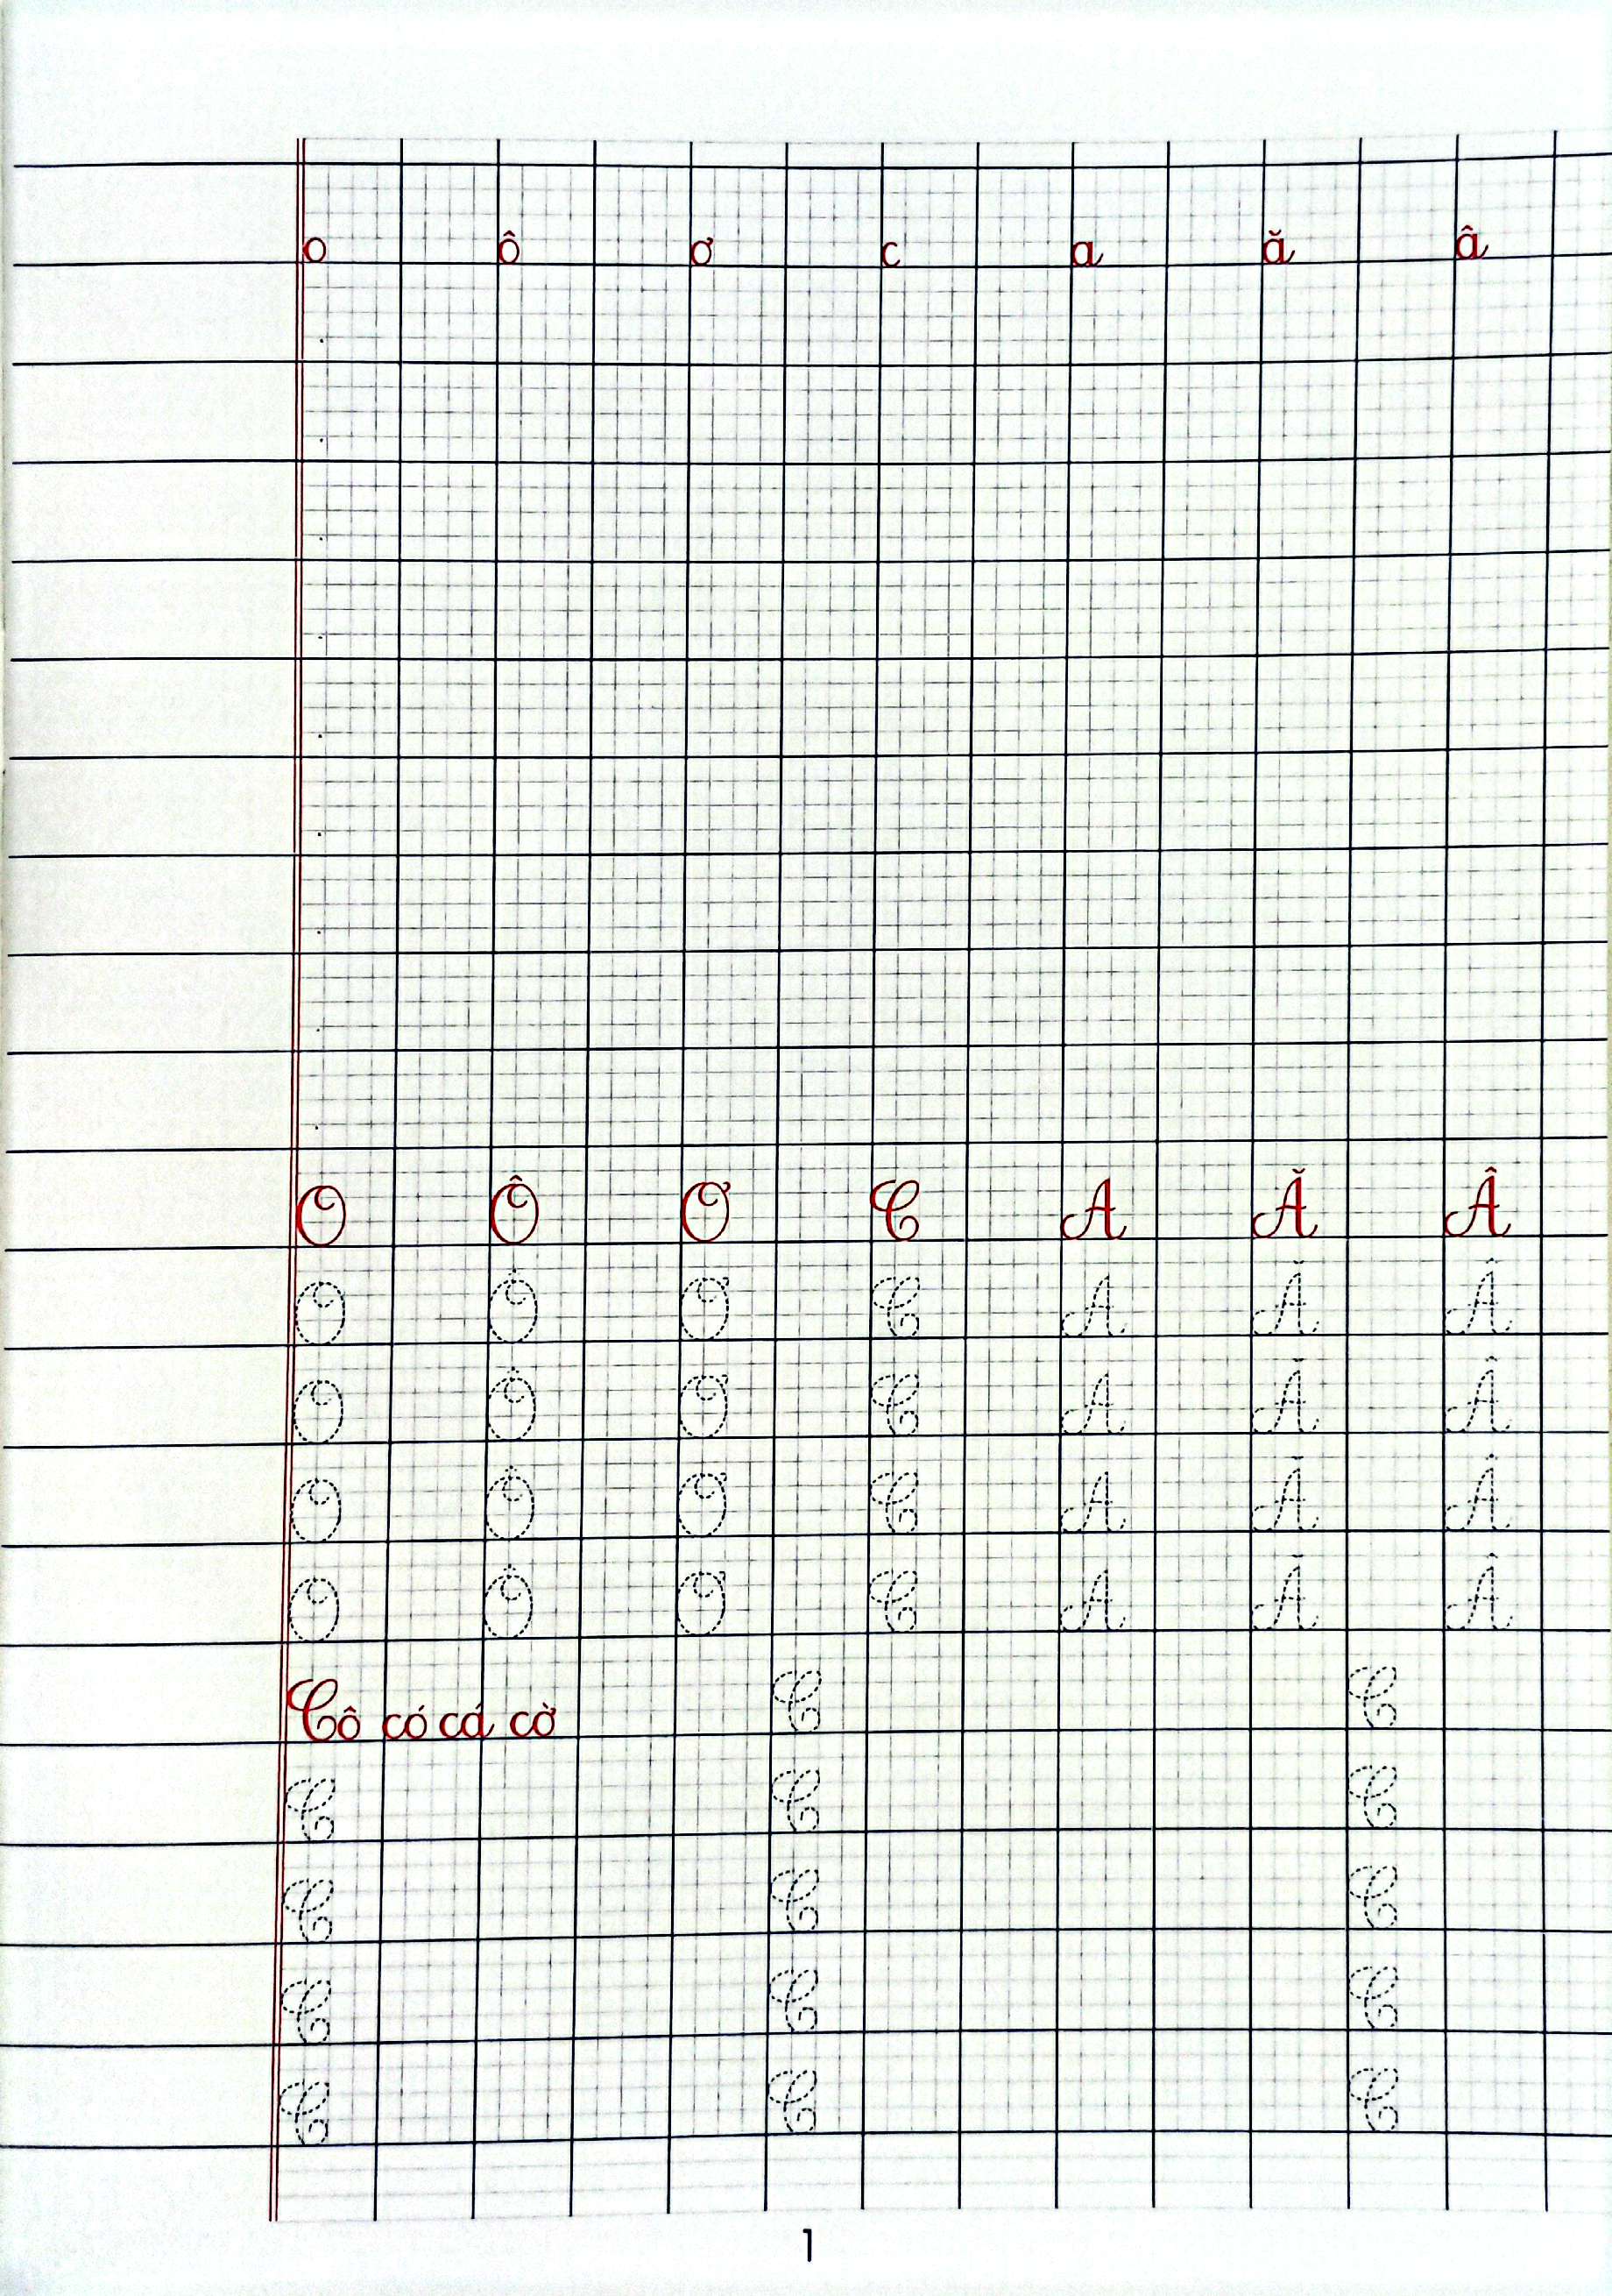 o ô ơ c a ă â
O Ô Ơ C A Ă Â
O Ô Ơ C A Ă Â
O Ô Ơ C A Ă Â
O Ô Ơ C A Ă Â
O Ô Ơ C A Ă Â
Cô có cá cờ C C
C C C
C C C
C C C
C C C
1